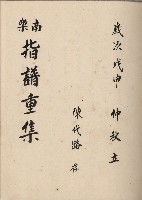 歲次戊申 仲秋立
陳代路 存
南樂
指譜重集